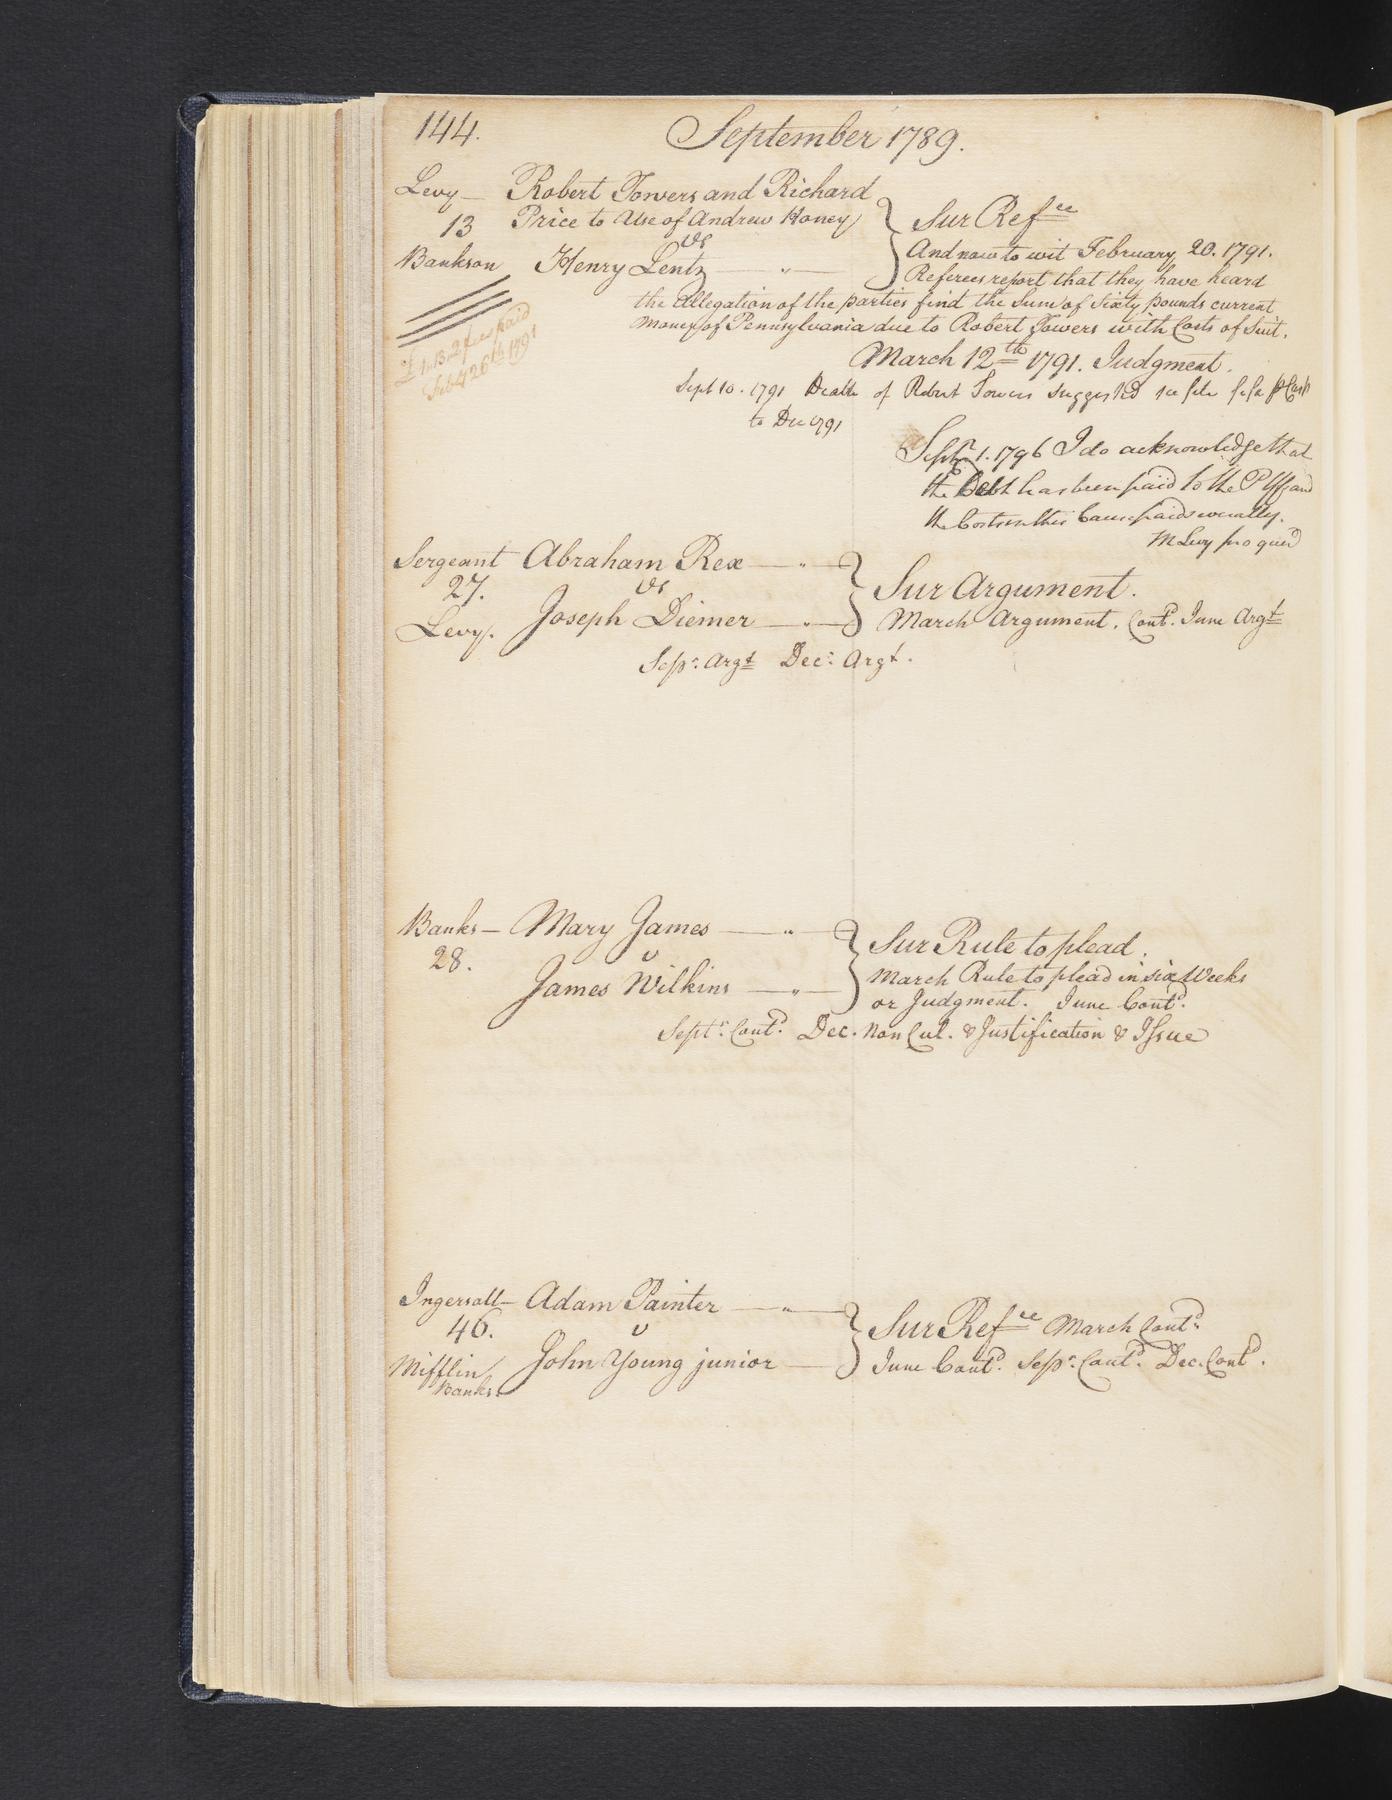 144.
September 1789.
Levy — Robert Towers and Richard
13 Price to Use of Andrew Honey
vs
Bankson Henry Lentz — " —
Sur Refce
And now to wit February 20. 1791.
Referees report that they have heard
the allegation of the parties find the Sum of Sixty pounds current
money of Pennsylvania due to Robert Towers with Costs of Suit.
£1.13.2 fees paid
Feb 26th 1791
March 12th 1791. Judgment.
Sept 10. 1791 Death of Robert Towers suggested
to Dec 1791
Septr. 1. 1796 I do acknowledge that
the Debt has been paid to the Plff and
the Costs in this Cause paid severally.
M Levy pro quer
Sergeant Abraham Rex — " —
27. vs
Levy. Joseph Diemer — " —
Sur Argument.
March Argument. Contd. June Argt
Sepr. Argt Decr. Argt.
Banks — Mary James — " —
28. v
James Wilkins — " —
Sur Rule to plead.
March Rule to plead in six Weeks
or Judgment. June Contd.
Septr. Contd. Dec. Non Cul. & Justification & Issue
Ingersoll — Adam Painter — " —
46. v
Mifflin John Young junior —
Banks.
Sur Refce March Contd.
June Contd. Sepr. Contd. Dec. Contd.